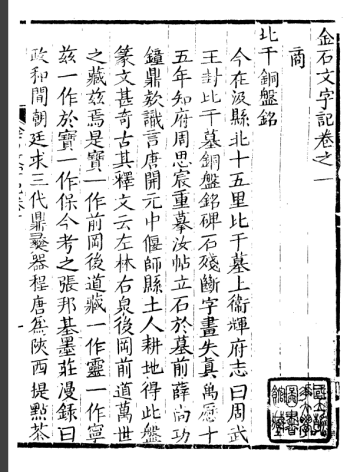 金石文字記卷之一
商
比干銅盤銘
今在汲縣北十五里比干墓上衞輝府志曰周武
王封比干墓銅盤銘碑石殘斷字畫失真萬曆十
五年知府周思宸重摹汝帖立石於墓前薛尚功
鐘鼎款識言唐開元中偃師縣土人耕地得此盤
篆文甚奇古其釋文云左林右泉後岡前道萬世
之藏兹焉是寶一作前岡後道藏一作靈一作寧
兹一作於寶一作保今考之張邦基墨莊漫錄曰
政和間朝廷求三代鼎彞器程唐為陝西提點茶